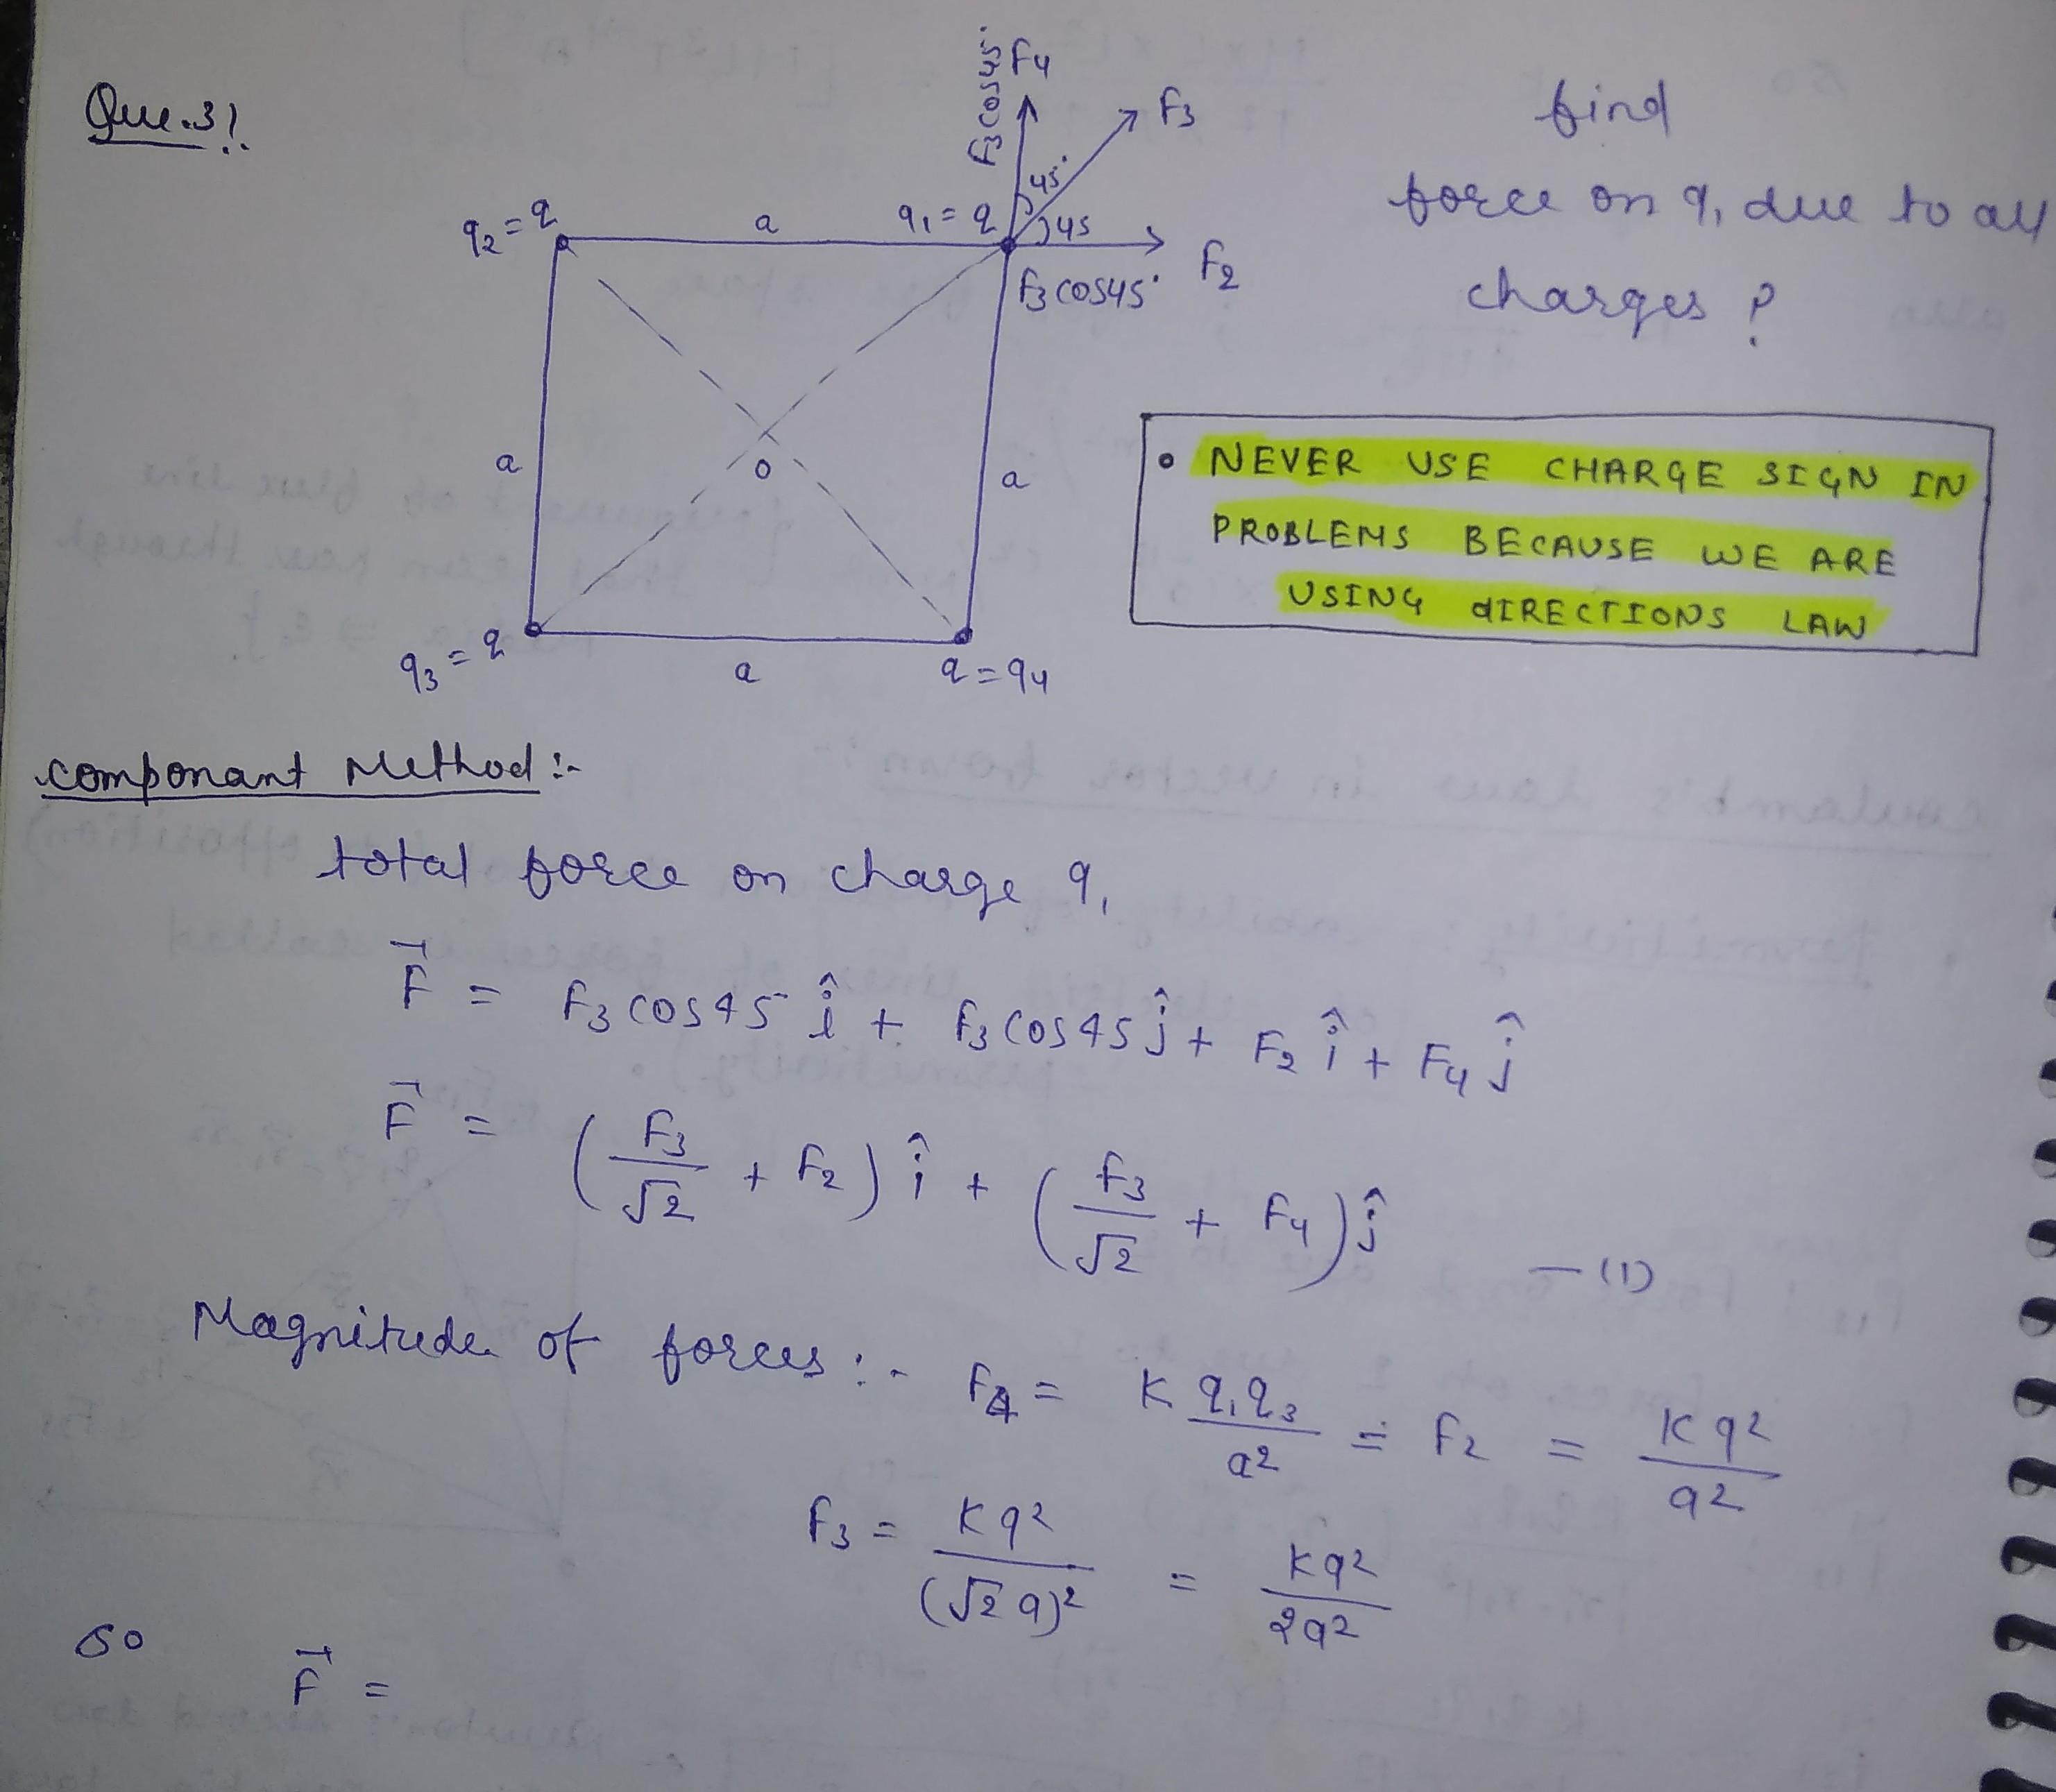 Que.3:
F3cos45° F4
F3
45°
45
F2
F3 cos45°
q2 = q
a
q1 = q
a
a
O
q3 = q
a
q = q4
find
force on q1 due to all
charges ?
• NEVER USE CHARGE SIGN IN
PROBLEMS BECAUSE WE ARE
USING dIRECTIONS LAW
componant Method :-
total force on charge q1
F⃗ = F3 cos45 î + F3 cos45 ĵ + F2 î + F4 ĵ
F⃗ = (F3/√2 + F2) î + (F3/√2 + F4) ĵ — (1)
Magnitude of forces :- F4 = K q1q3/a² = F2 = Kq²/a²
F3 = Kq²/(√2 a)² = Kq²/2a²
so F⃗ =